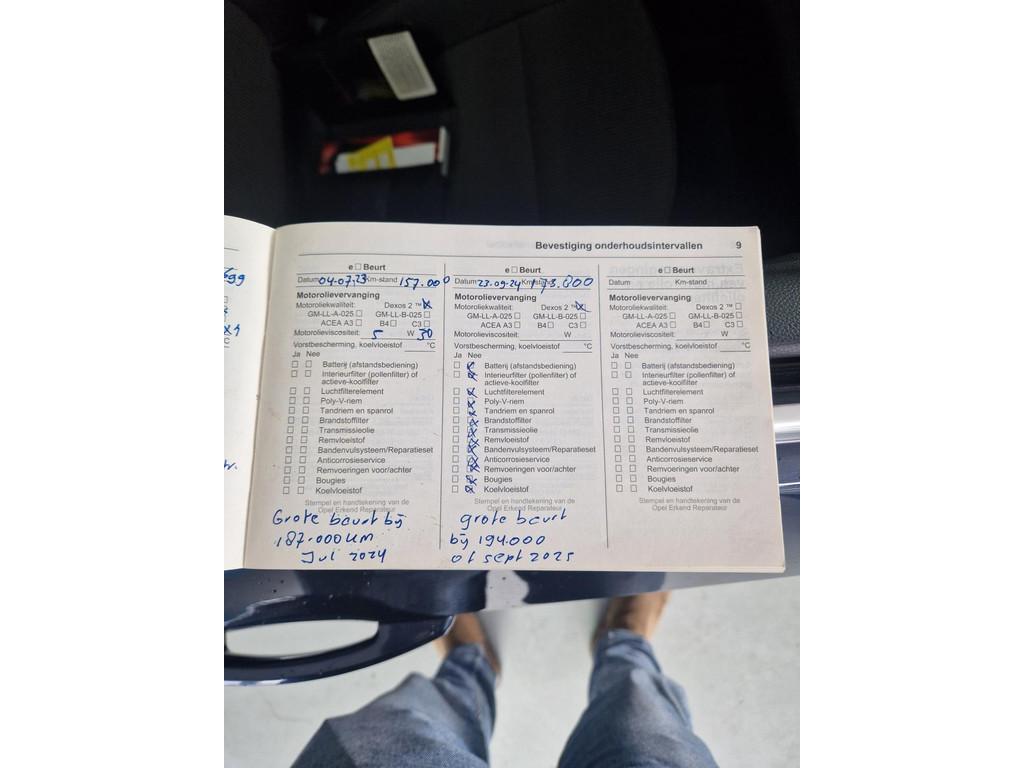 Bevestiging onderhoudsintervallen 9
e ☐ Beurt
Datum 04-07-23 Km-stand 157.000
Motorolievervanging
Motoroliekwaliteit: Dexos 2 ™ ☒
GM-LL-A-025 ☐ GM-LL-B-025 ☐
ACEA A3 ☐ B4 ☐ C3 ☐
Motorolieviscositeit: 5 W 30
Vorstbescherming, koelvloeistof °C
Ja Nee
☐ ☐ Batterij (afstandsbediening)
☐ ☐ Interieurfilter (pollenfilter) of
actieve-koolfilter
☐ ☐ Luchtfilterelement
☐ ☐ Poly-V-riem
☐ ☐ Tandriem en spanrol
☐ ☐ Brandstoffilter
☐ ☐ Transmissieolie
☐ ☐ Remvloeistof
☐ ☐ Bandenvulsysteem/Reparatieset
☐ ☐ Anticorrosieservice
☐ ☐ Remvoeringen voor/achter
☐ ☐ Bougies
☐ ☐ Koelvloeistof
Stempel en handtekening van de
Opel Erkend Reparateur
Grote beurt bij
187.000 km
Jul 2024
e ☐ Beurt
Datum 23.09-24 Km-stand 173.800
Motorolievervanging
Motoroliekwaliteit: Dexos 2 ™ ☒
GM-LL-A-025 ☐ GM-LL-B-025 ☐
ACEA A3 ☐ B4 ☐ C3 ☐
Motorolieviscositeit: W
Vorstbescherming, koelvloeistof °C
Ja Nee
☐ ☒ Batterij (afstandsbediening)
☐ ☒ Interieurfilter (pollenfilter) of
actieve-koolfilter
☐ ☒ Luchtfilterelement
☐ ☒ Poly-V-riem
☐ ☒ Tandriem en spanrol
☐ ☒ Brandstoffilter
☐ ☒ Transmissieolie
☐ ☒ Remvloeistof
☐ ☒ Bandenvulsysteem/Reparatieset
☐ ☒ Anticorrosieservice
☐ ☒ Remvoeringen voor/achter
☐ ☒ Bougies
☐ ☒ Koelvloeistof
Stempel en handtekening van de
Opel Erkend Reparateur
grote beurt
bij 194.000
of sept 2025
e ☐ Beurt
Datum Km-stand
Motorolievervanging
Motoroliekwaliteit: Dexos 2 ™ ☐
GM-LL-A-025 ☐ GM-LL-B-025 ☐
ACEA A3 ☐ B4 ☐ C3 ☐
Motorolieviscositeit: W
Vorstbescherming, koelvloeistof °C
Ja Nee
☐ ☐ Batterij (afstandsbediening)
☐ ☐ Interieurfilter (pollenfilter) of
actieve-koolfilter
☐ ☐ Luchtfilterelement
☐ ☐ Poly-V-riem
☐ ☐ Tandriem en spanrol
☐ ☐ Brandstoffilter
☐ ☐ Transmissieolie
☐ ☐ Remvloeistof
☐ ☐ Bandenvulsysteem/Reparatieset
☐ ☐ Anticorrosieservice
☐ ☐ Remvoeringen voor/achter
☐ ☐ Bougies
☐ ☐ Koelvloeistof
Stempel en handtekening van de
Opel Erkend Reparateur